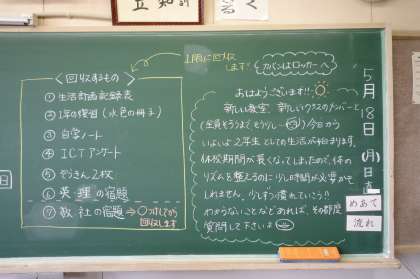 1限に回収します!
<回収するもの>
① 生活計画記録表
② 1年の復習(水色の冊子)
③ 自学ノート
④ ICTアンケート
⑤ ぞうきん2枚
⑥ 英・理の宿題
⑦ 数、社の宿題 → ○つけしてから回収します
カバンはロッカーへ
おはようございます!!
新しい教室、新しいクラスのメンバーと
(全員そろうまでもう少し…)今日から
いよいよ2年生としての生活が始まります。
休校期間が長くなってしまったので、体の
リズムを整えるのに少し時間が必要かも
しれません。少しずつ慣れていこう!!
わからないことなどあれば、その都度
質問して下さいね
5月18日(月)日直
めあて
流れ
日